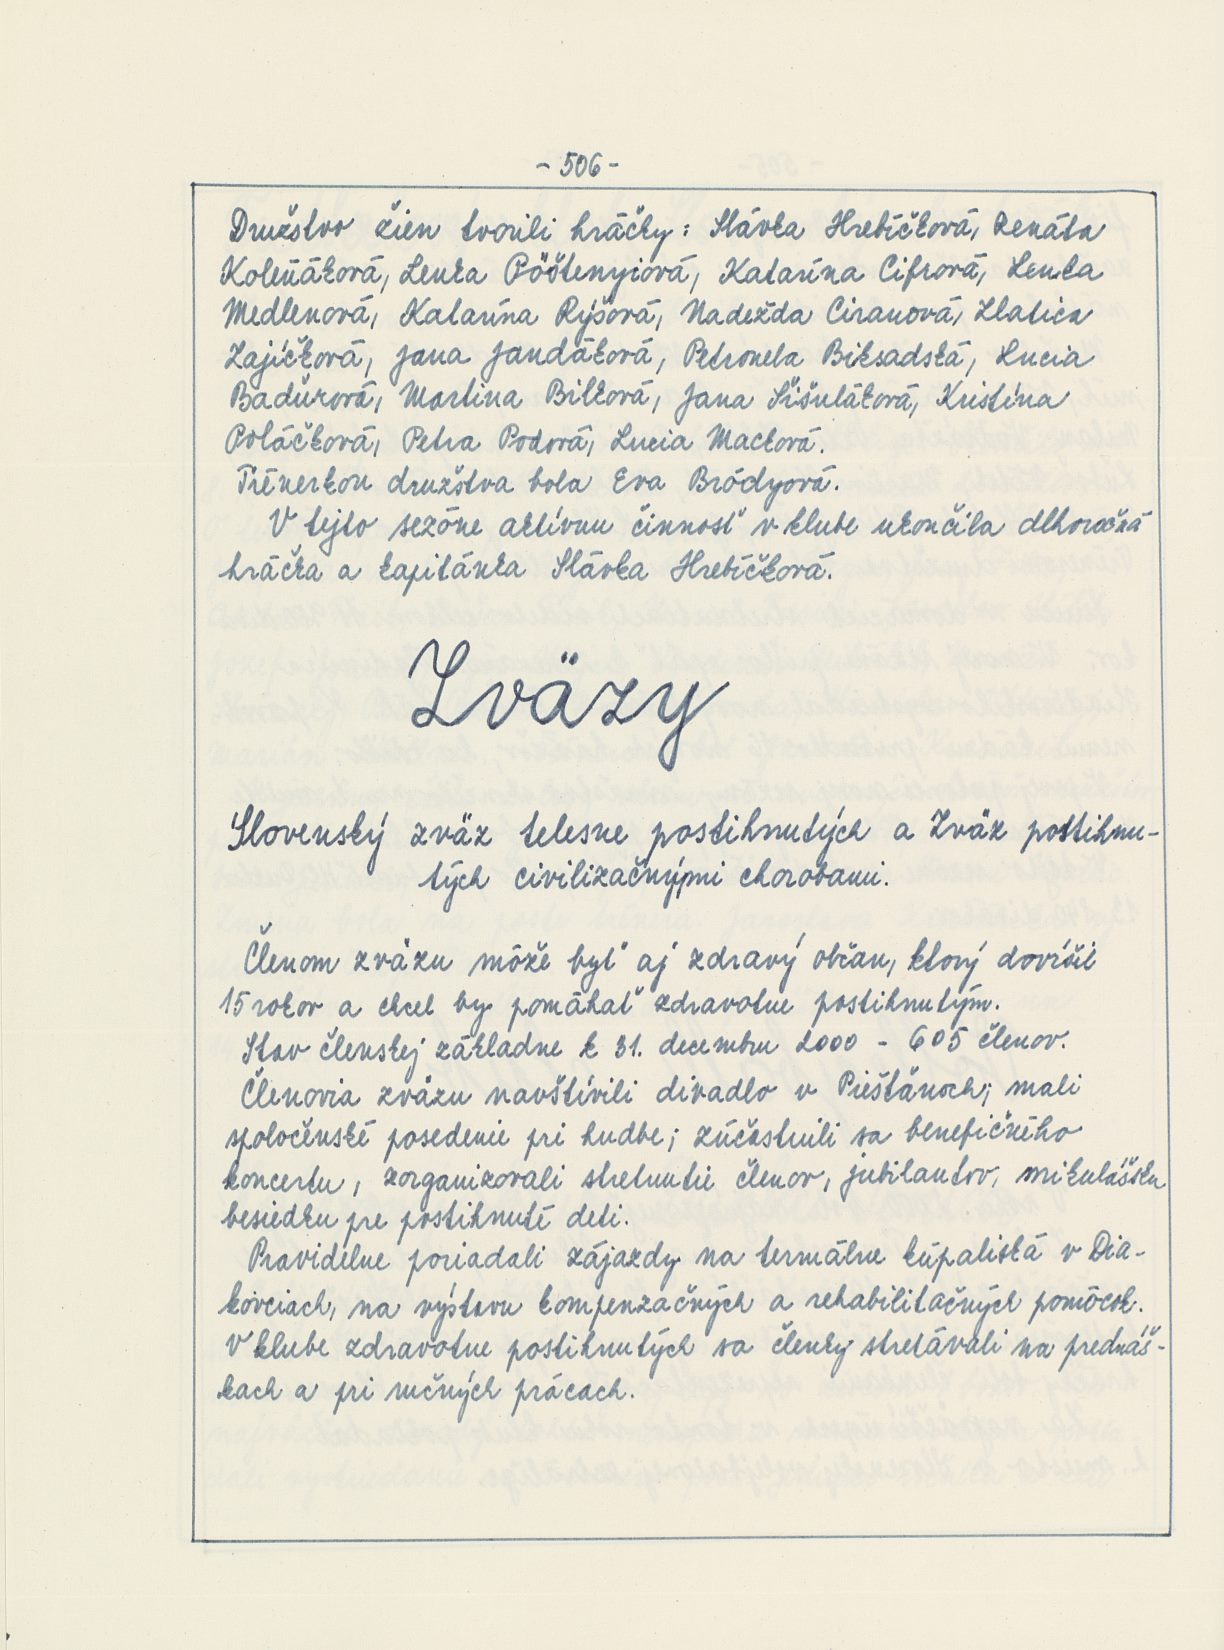 - 506 -
Družstvo žien tvorili hráčky: Slávka Hrebíčková, Renáta
Koleňáková, Lenka Pööštenyiová, Katarína Cifrová, Lenka
Medlenová, Katarína Rýšová, Nadežda Ciranová, Zlatica
Zajíčková, Jana Jandáková, Petronela Biksadská, Lucia
Badúrová, Martina Bilková, Jana Šišuláková, Kristína
Poláčková, Petra Podová, Lucia Macková.
Trénerkou družstva bola Eva Bródyová.
V tejto sezóne aktívnu činnosť v klube ukončila dlhoročná
hráčka a kapitánka Slávka Hrebíčková.
Zväzy
Slovenský zväz telesne postihnutých a Zväz postihnu-
tých civilizačnými chorobami.
Členom zväzu môže byť aj zdravý občan, ktorý dovŕšil
15 rokov a chcel by pomáhať zdravotne postihnutým.
Stav členskej základne k 31. decembru 2000 - 605 členov.
Členovia zväzu navštívili divadlo v Piešťanoch; mali
spoločenské posedenie pri hudbe; zúčastnili sa benefičného
koncertu, zorganizovali stretnutie členov, jubilantov, mikulášsku
besiedku pre postihnuté deti.
Pravidelne poriadali zájazdy na termálne kúpaliská v Dia-
kovciach, na výstavu kompenzačných a rehabilitačných pomôcok.
V klube zdravotne postihnutých sa členky stretávali na prednáš-
kach a pri ručných prácach.